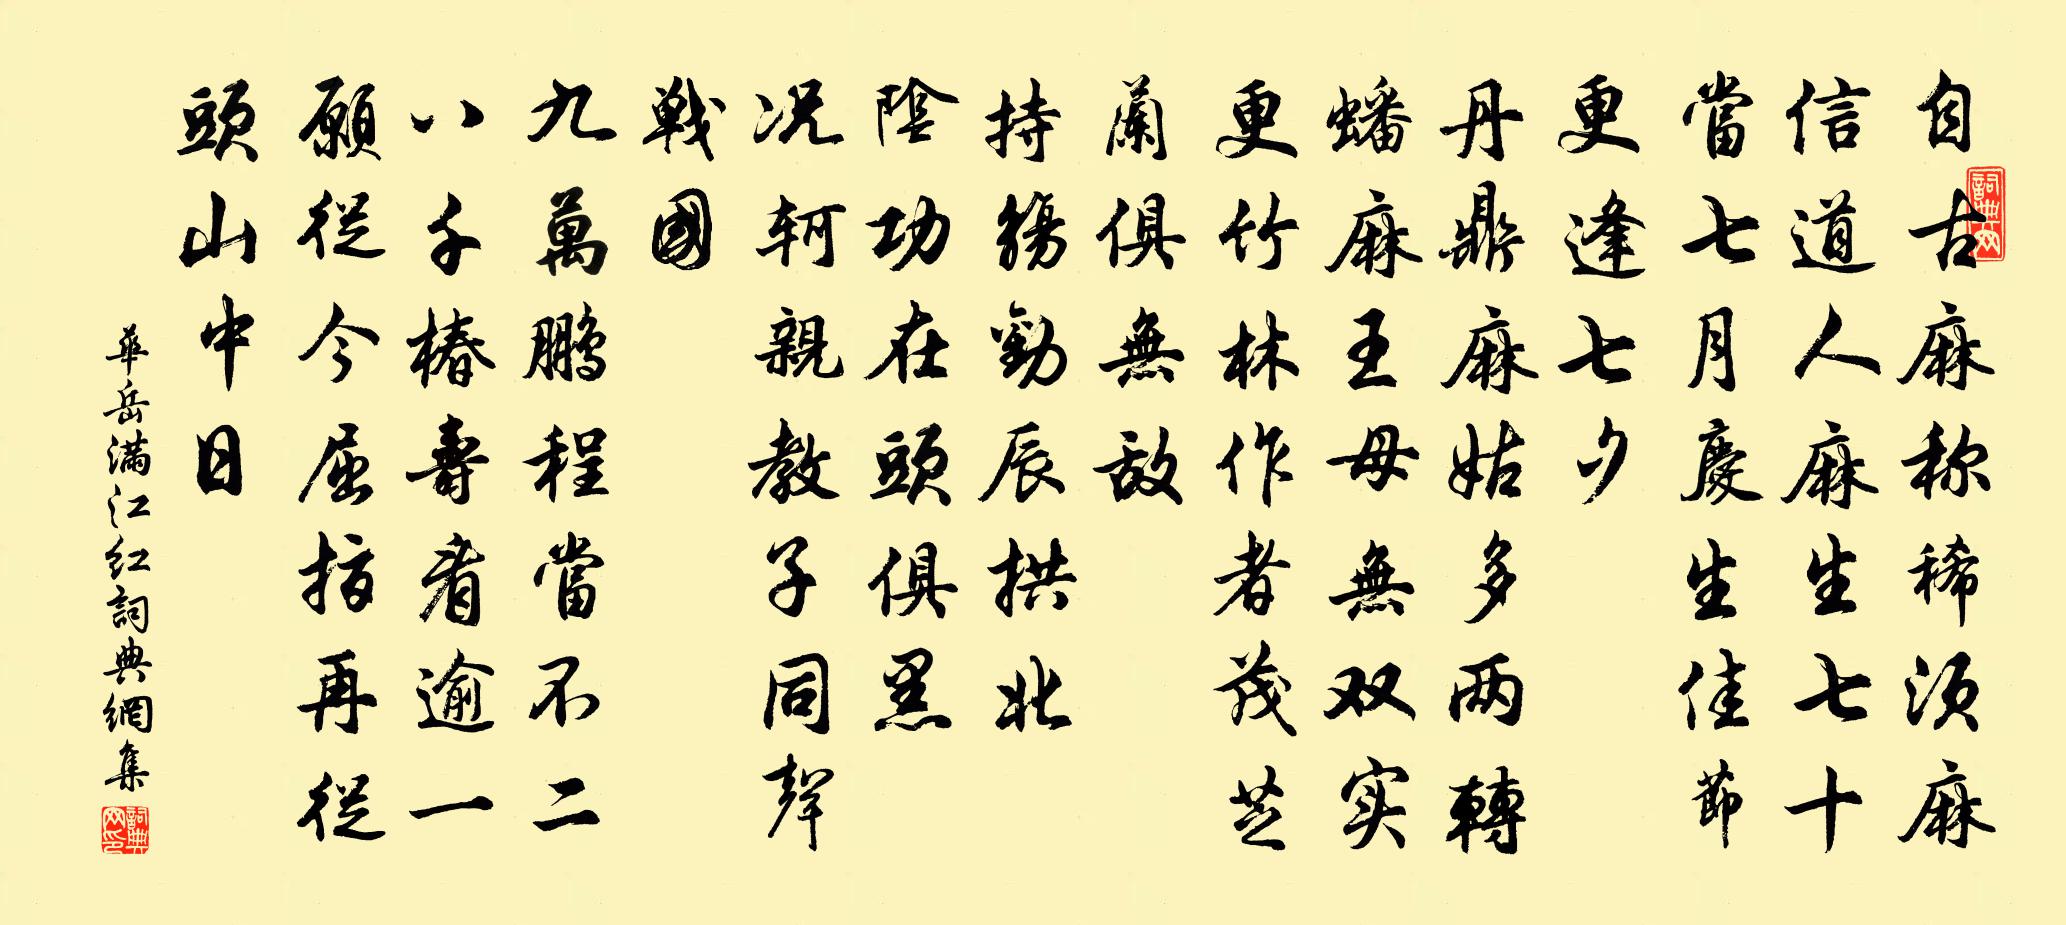 自古麻称稀须麻
信道人麻生七十
當七月慶生佳節
更逢七夕
丹鼎麻姑多两轉
蟠麻王母無双实
更竹林作者茂芝
蘭俱無敌
持觴勸辰拱北
陰功在頭俱黑
况轲親教子同聲
戰國
九萬鵬程當不二
八千椿壽看逾一
願從今屈指再從
頭山中日
華岳满江红詞典網集
詞典网
詞典网印